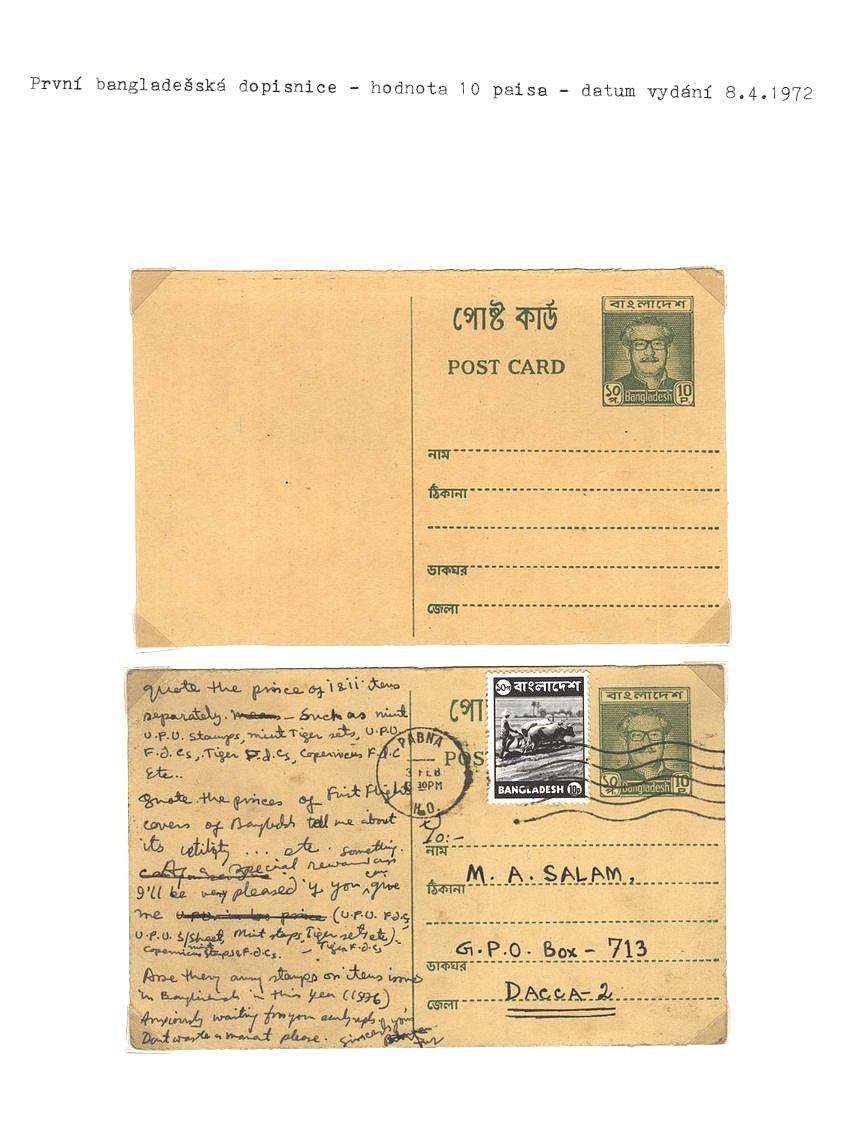 První bangladešská dopisnice - hodnota 10 paisa - datum vydání 8.4.1972
পোষ্ট কার্ড
POST CARD
বাংলাদেশ
১০ প.
Bangladesh
10 P.
নাম
ঠিকানা
ডাকঘর
জেলা
quote the prince of i & ii itens
separately. - Such as mint
U.P.U Stamps, mint Tiger sets, U.P.U
F.d.Cs, Tiger F.d.Cs, Copernicus F.d.C
Etc..
Quote the princes of First Flight
covers of me about
its utility ... etc. something.
special
I'll be very pleased if you can give
me (U.P.U. F.d.C,
U.P.U S/Sheet, Mint steps, Tiger sets etc)
Copernicus mint stepes & F.d.Cs. - Tiger F.d.Cs
Are there any stamps on itens
in in this year (1976)
Anxiously waiting for your
Dont waste a please.
পো
POS
PABNA
3 FEB
30PM
H.O.
১০ প
বাংলাদেশ
BANGLADESH 10p
বাংলাদেশ
১০ প.
Bangladesh
10 P.
To:-
নাম
M. A. SALAM,
ঠিকানা
G.P.O. Box - 713
ডাকঘর
জেলা
DACCA-2